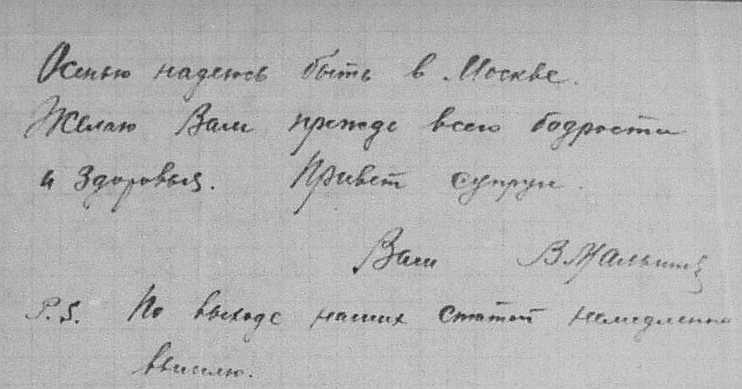 Осенью надеюсь быть в Москве.
Желаю Вам прежде всего бодрости
и здоровья. Привет супруге.
Ваш В Малышев
P.S. По выходе наших статей немедленно
вышлю.